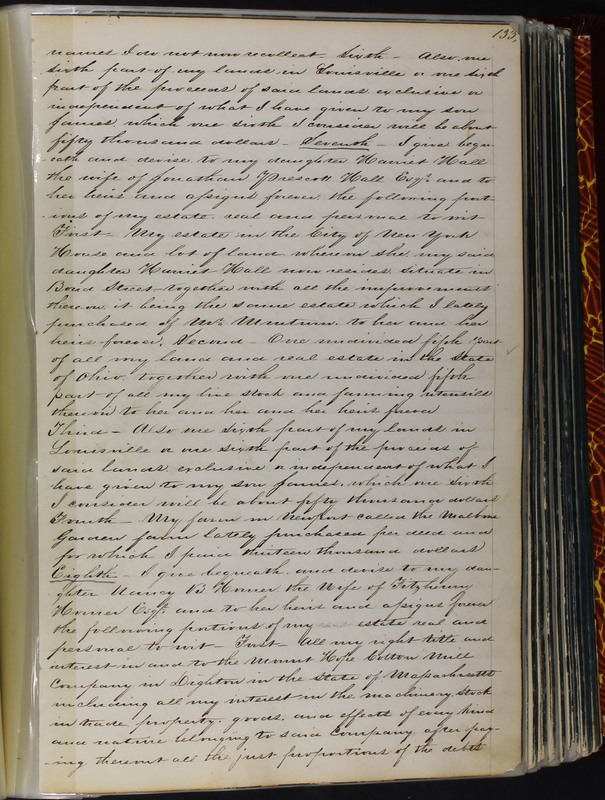 135.
names I do not now recollect Sixth - Also, one
sixth part of my lands in Louisville or one sixth
part of the proceeds of said lands exclusive or
independent of what I have given to my son
James which one sixth I consider will be about
fifty thousand dollars - Seventh - I give bequ-
eath and devise to my daughter Harriet Hall
the wife of Jonathan Prescott Hall Esqr. and to
her heirs and assigns forever the following port-
ions of my estate real and personal to wit
First - My estate in the City of New York
House and lot of land whereon she my said
daughter Harriet Hall now resides situate in
Bond Street together with all the improvements
thereon it being the same estate which I lately
purchased of Mr. Minturn. to her and her
heirs forever. Second - One undivided fifth part
of all my land and real estate in the State
of Ohio. together with one undivided fifth
part of all my live stock and farming utensils
thereon to her and her and her heirs forever
Third - Also one sixth part of my lands in
Louisville or one sixth part of the proceeds of
said lands exclusive or independent of what I
have given to my son James, which one sixth
I consider will be about fifty thousand dollars
Fourth - My farm in Newport called the Malbone
Garden farm lately purchased per deed and
for which I paid thirteen thousand dollars
Eighth - I give bequeath and devise to my dau-
ghter Nancy B Homer the Wife of Fitzhenry
Homer Esqr. and to her heirs and assigns forever
the following portions of my estate real and
personal to wit - First - All my right title and
interest in and to the Mount Hope Cotton Mill
Company in Dighton in the State of Massachusetts
including all my interest in the machinery, stock
in trade property, goods, and effects of every kind
and nature belonging to said Company after pay-
ing thereout all the just proportions of the debts